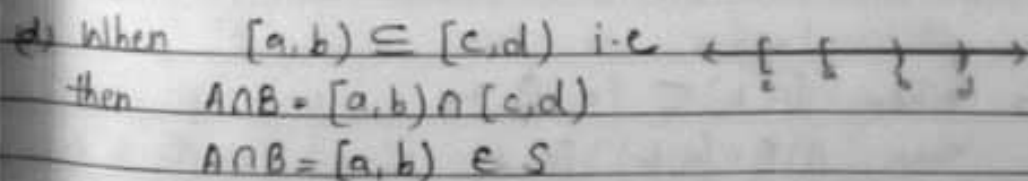 d) When [a,b) ⊆ [c,d) i.e
then A∩B = [a,b) ∩ [c,d)
A∩B = [a,b) ∈ S